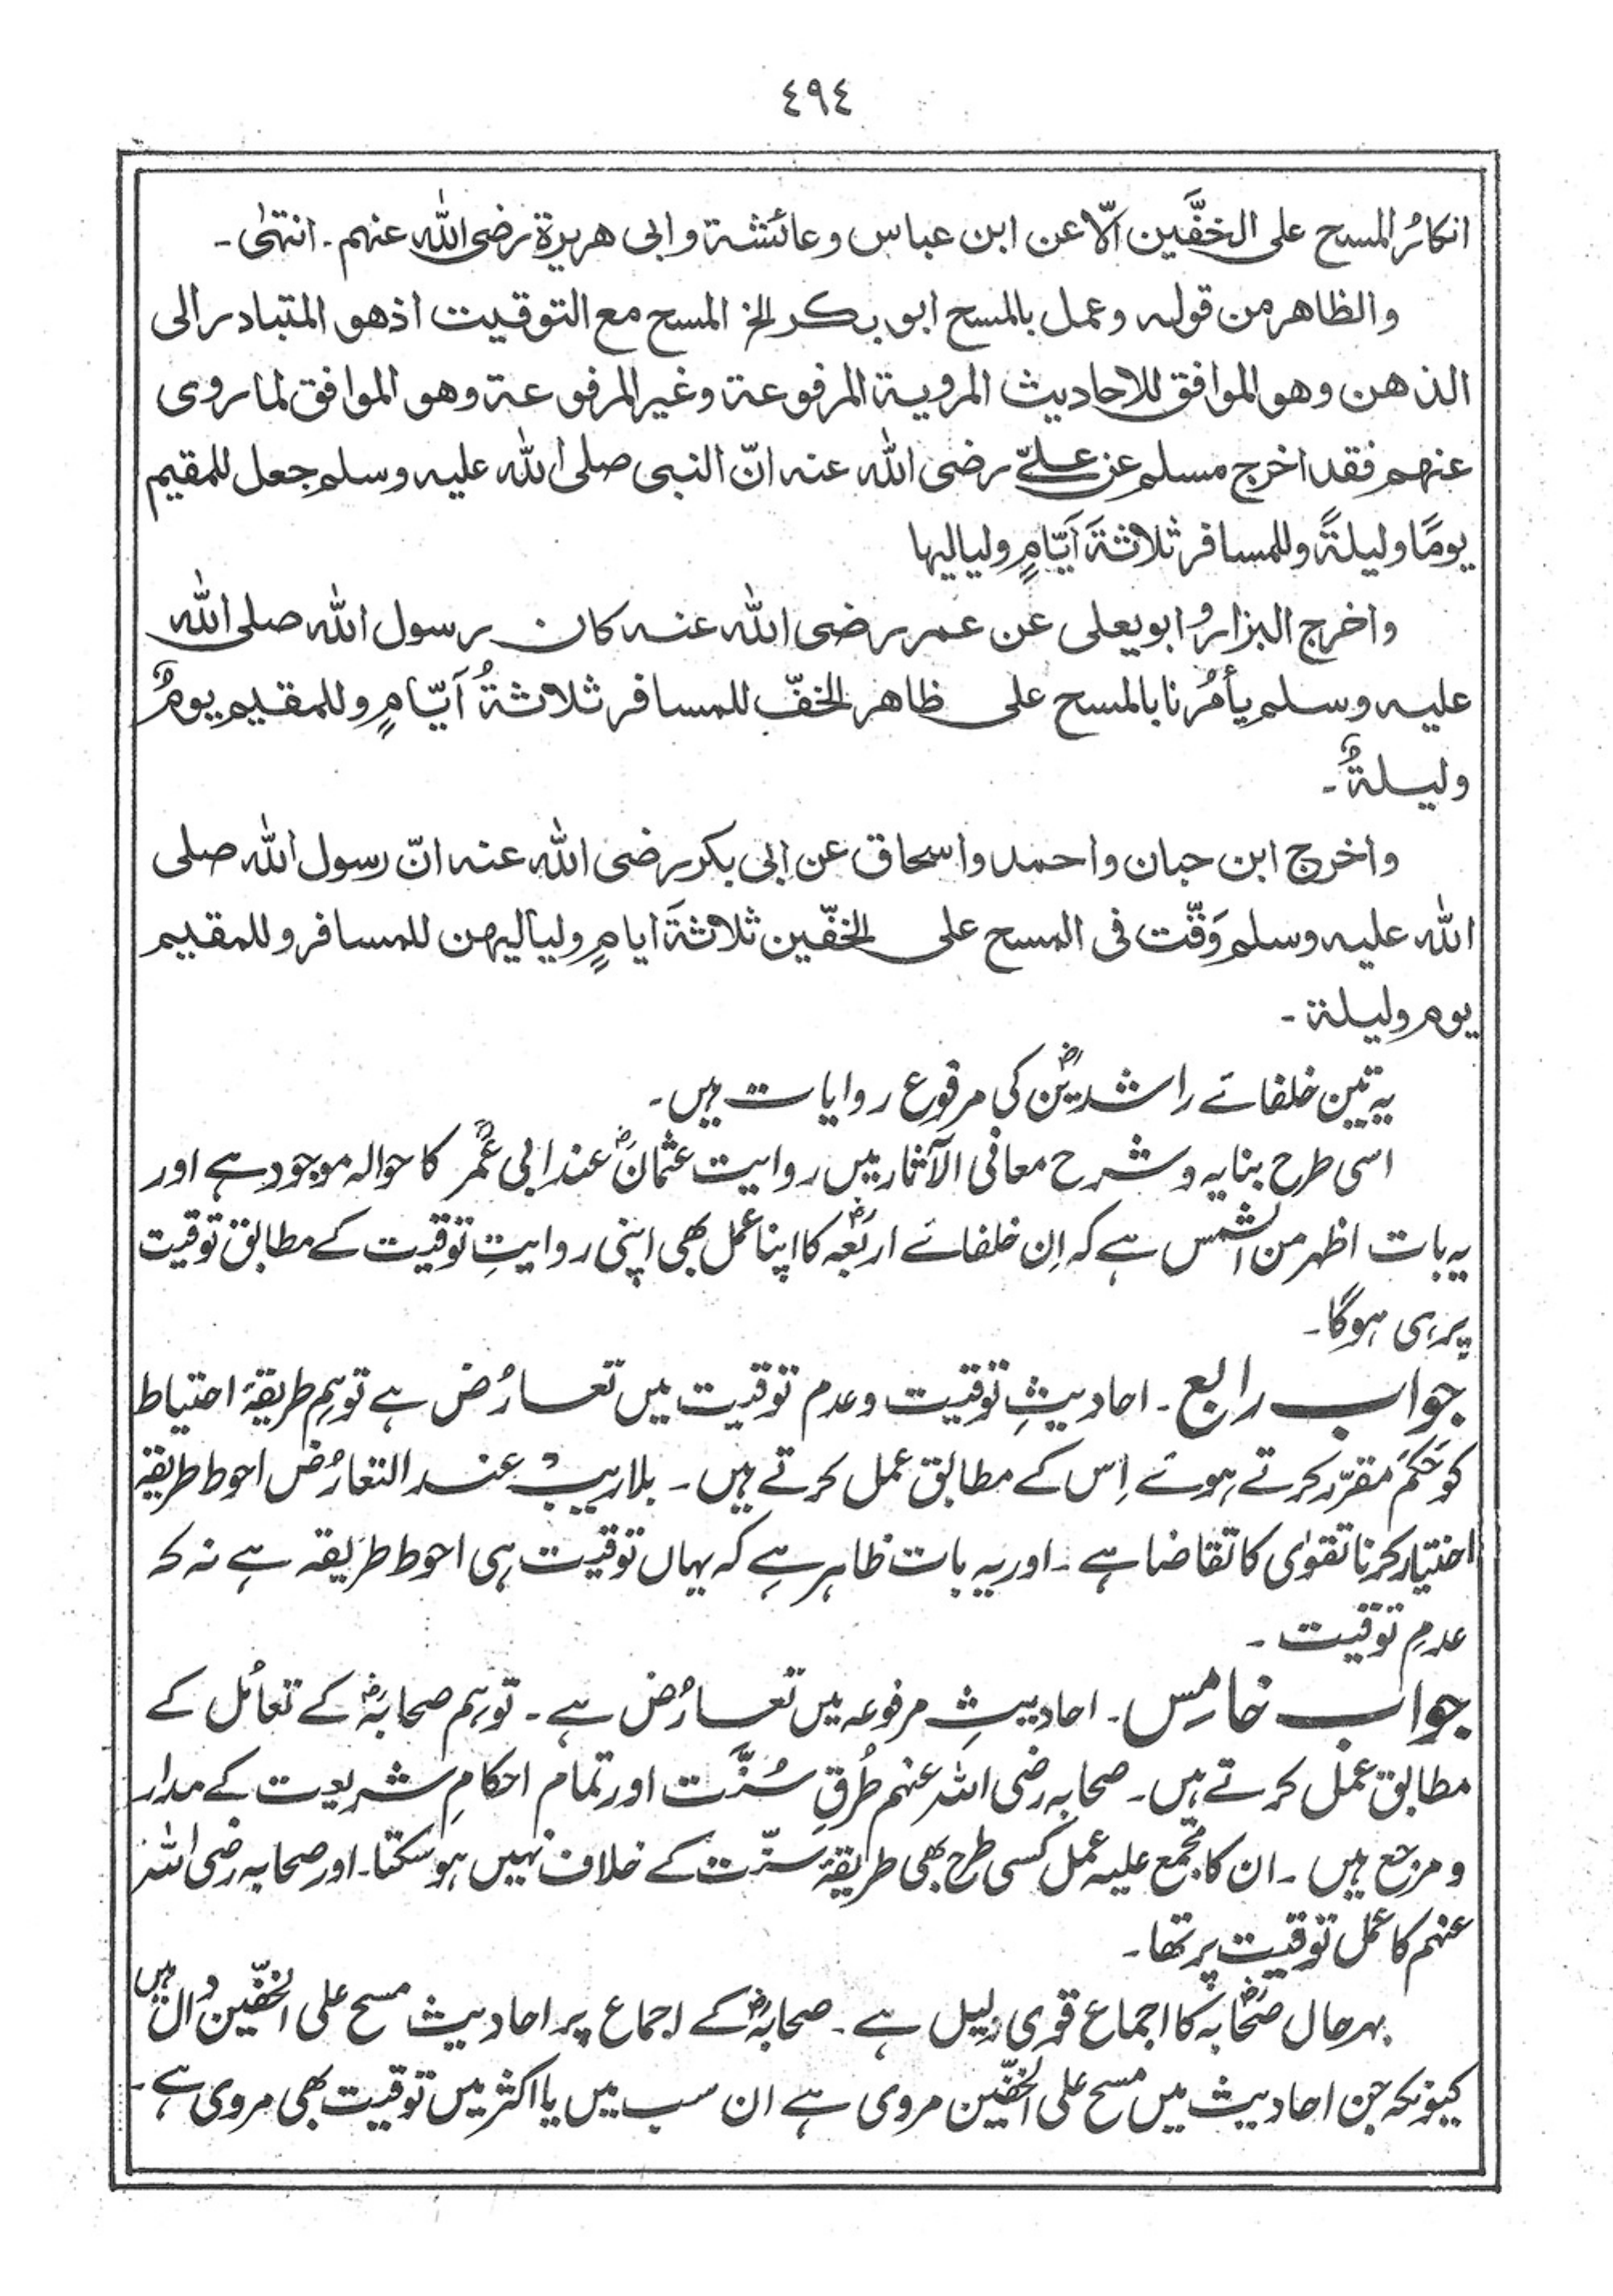 ٤٩٤
انکارُ المسح علی الخفَّین الّا عن ابن عباس وعائشۃ وابی ھریرۃ رضی اللہ عنہم ۔ انتہٰی ۔
والظاھر من قولہ وعمل بالمسح ابو بکر الخ المسح مع التوقیت اذھو المتبادر الی
الذھن وھو الموافق للاحادیث المرویۃ المرفوعۃ وغیر المرفوعۃ وھو الموافق لما روی
عنہم فقد اخرج مسلم عن علیّ رضی اللہ عنہ انّ النبی صلی اللہ علیہ وسلم جعل للمقیم
یومًا ولیلۃً وللمسافر ثلاثۃَ اَیّامٍ ولیالیہا
واخرج البزارُ وابویعلی عن عمر رضی اللہ عنہ کان رسول اللہ صلی اللہ
علیہ وسلم یأمُرنا بالمسح علی ظاھر الخفّ للمسافر ثلاثۃُ اَیّامٍ وللمقیم یومٌ
ولیلۃٌ ۔
واخرج ابن حبان واحمد واسحاق عن ابی بکر رضی اللہ عنہ انّ رسول اللہ صلی
اللہ علیہ وسلم وَقّت فی المسح علی الخفّین ثلاثۃَ ایامٍ ولیالیہن للمسافر وللمقیم
یوم ولیلۃ ۔
یہ تین خلفائے راشدینؓ کی مرفوع روایات ہیں ۔
اسی طرح بنایہ و شرح معانی الآثار میں روایت عثمانؓ عند ابی عُمر کا حوالہ موجود ہے اور
یہ بات اظہر من الشمس ہے کہ اِن خلفائے اربعہؓ کا اپنا عمل بھی اپنی روایتِ توقیت کے مطابق توقیت
پر ہی ہوگا ۔
جواب رابع ۔ احادیثِ توقیت و عدم توقیت میں تعارُض ہے تو ہم طریقۂ احتیاط
کو حَکَم مقرّر کرتے ہوئے اِس کے مطابق عمل کرتے ہیں ۔ بلاریب عند التعارُض احوط طریقہ
اختیار کرنا تقوٰی کا تقاضا ہے ۔ اور یہ بات ظاہر ہے کہ یہاں توقیت ہی احوط طریقہ ہے نہ کہ
عدمِ توقیت ۔
جواب خامس ۔ احادیثِ مرفوعہ میں تعارُض ہے ۔ تو ہم صحابہؓ کے تعامُل کے
مطابق عمل کرتے ہیں ۔ صحابہ رضی اللہ عنہم طُرقِ سُنّت اور تمام احکامِ شریعت کے مدار
و مرجع ہیں ۔ ان کا مجمع علیہ عمل کسی طرح بھی طریقۂ سنّت کے خلاف نہیں ہو سکتا ۔ اور صحابہ رضی اللہ
عنہم کا عمل توقیت پر تھا ۔
بہرحال صحابہؓ کا اجماع قوی دلیل ہے ۔ صحابہؓ کے اجماع پر احادیث مسح علی الخفّین دال ہیں
کیونکہ جن احادیث میں مسح علی الخفّین مروی ہے ان سب میں یا اکثر میں توقیت بھی مروی ہے ۔